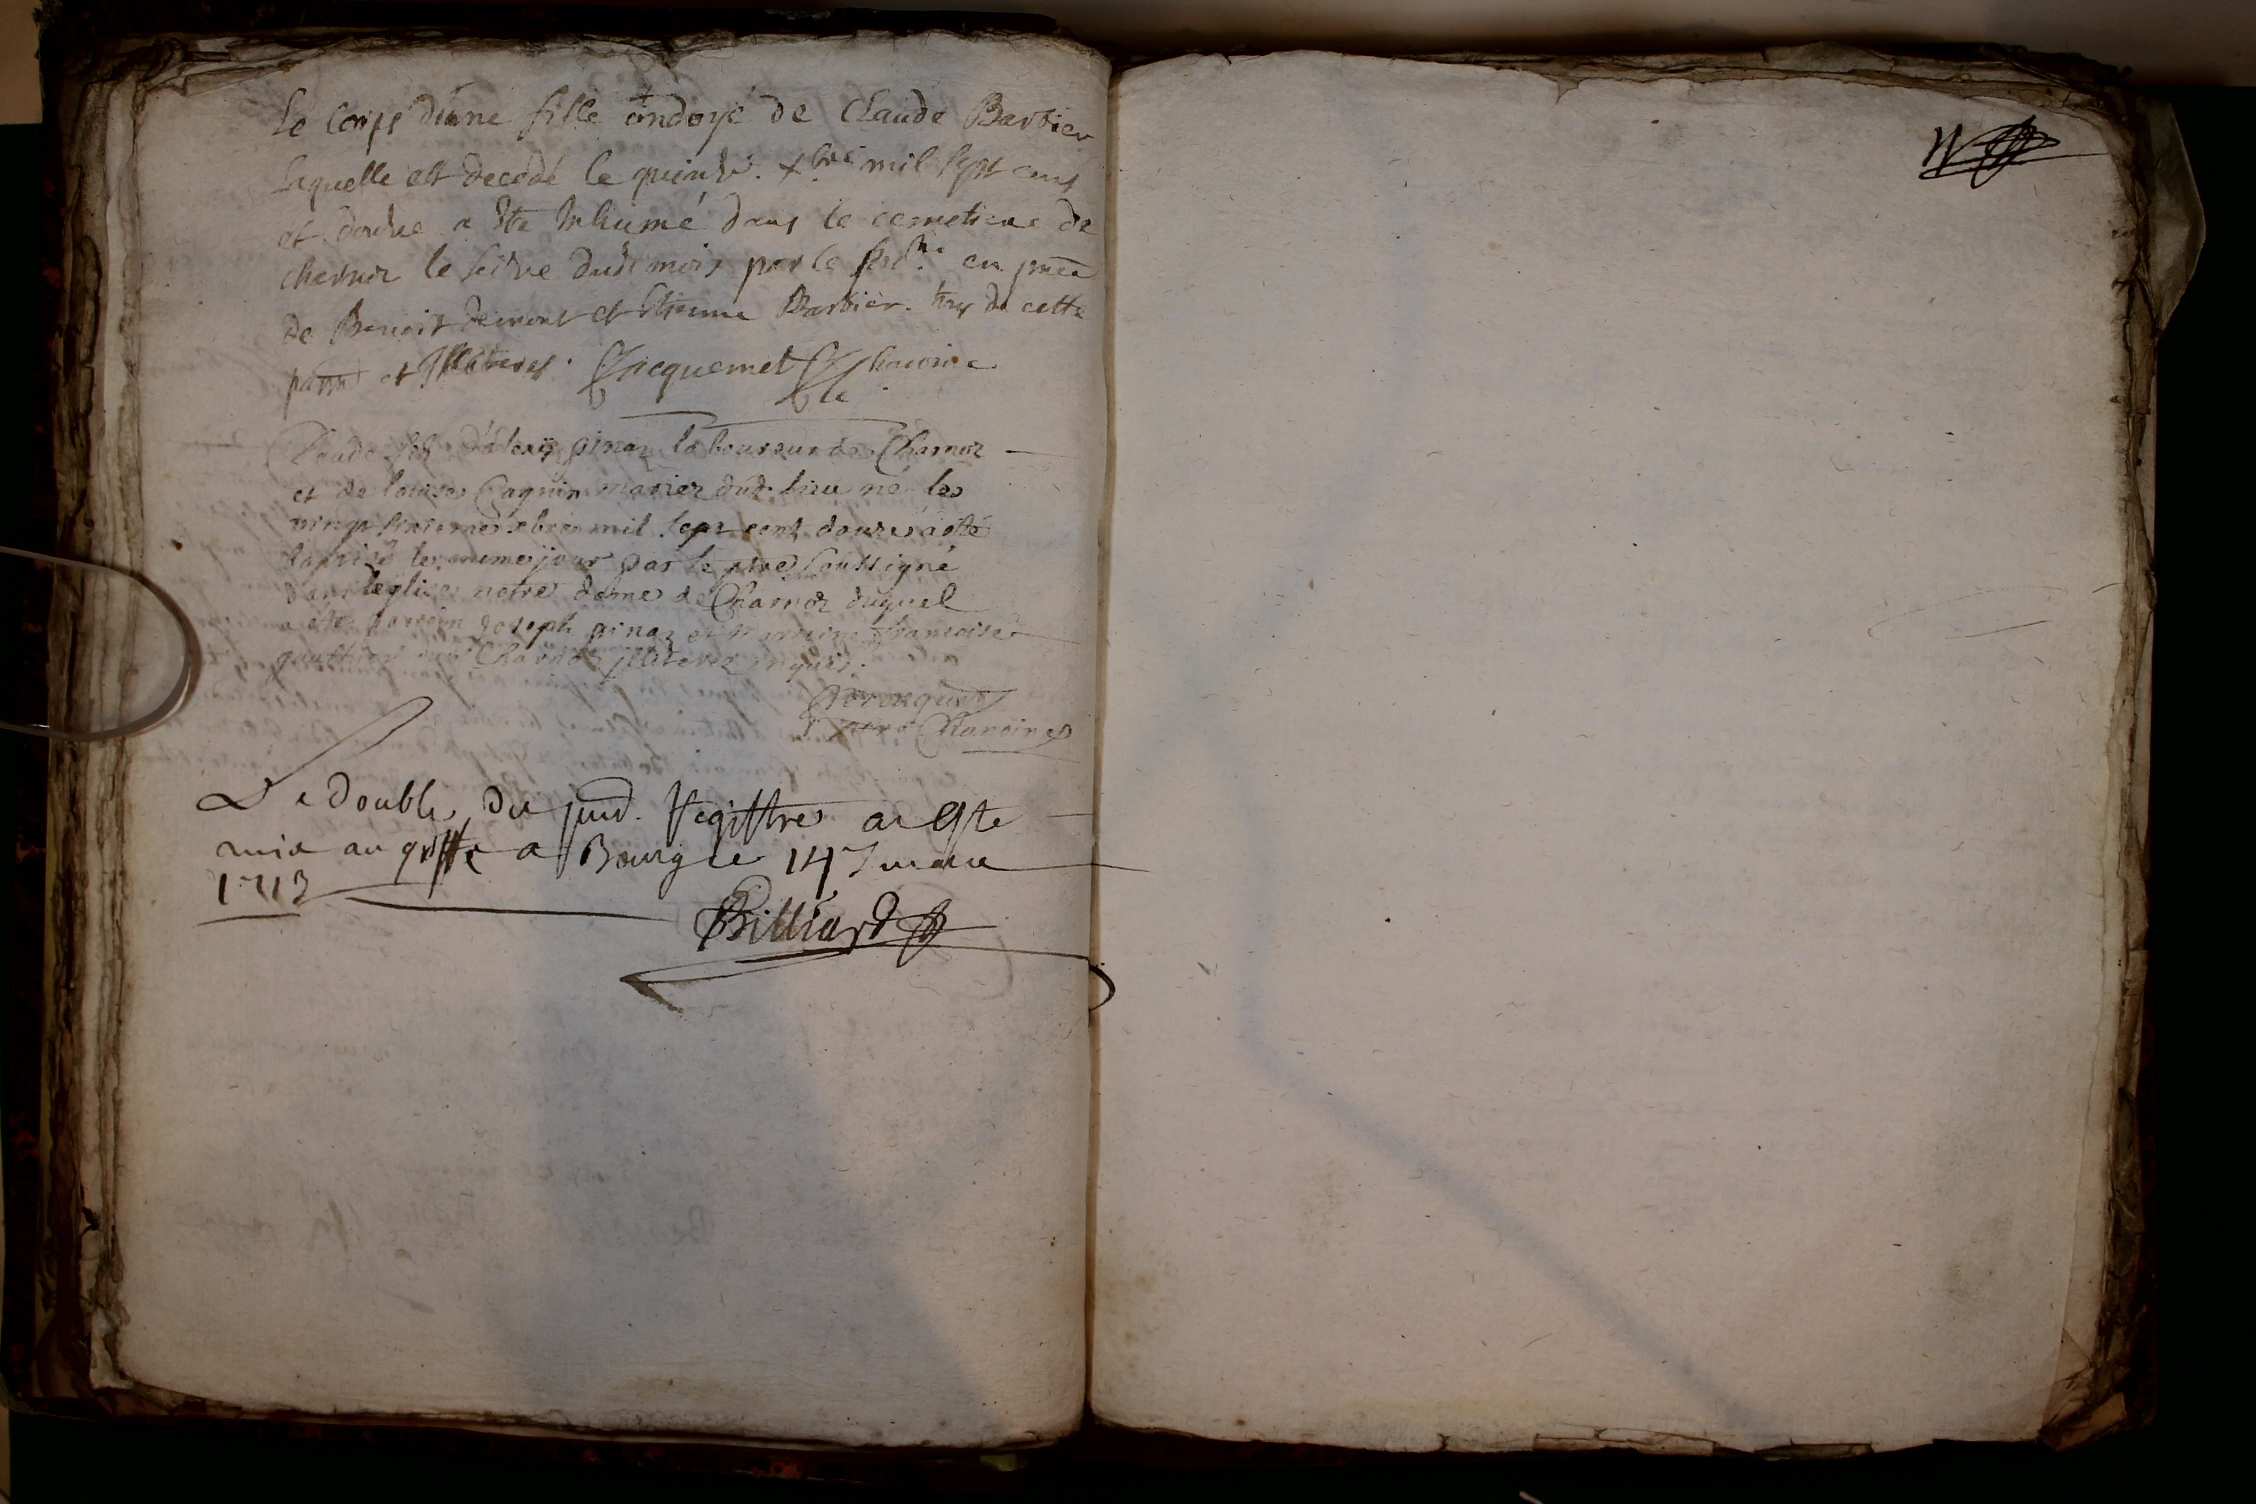 Le Corps d'une fille ondoyé de Claude Barbier
laquelle est decedé le quinze xbre mil sept cens
et douze a ete Inhumé dans le cemetiere de
charnoz le seize dudt mois par le en pnce
de Benoit et Etienne Barbier de cette
parre et Illiteres. Jacquemet Chanoine
Claude fils d'alexis pinaz laboureur de Charnoz
et de louise Cagnin mariez dud. lieu né le
vingt xbre mil sept cent douze a esté
baptisé le mesme jour par le ptre soussigné
dans leglise notre dame de Charnoz duquel
a été parrein Joseph pinaz et marreine francoise
dud Charnoz illiterez enquis.
ptre Chanoine
Le double du pnd. Registre a Este
mis au greffe a Bourg le 14
1713
Billiard